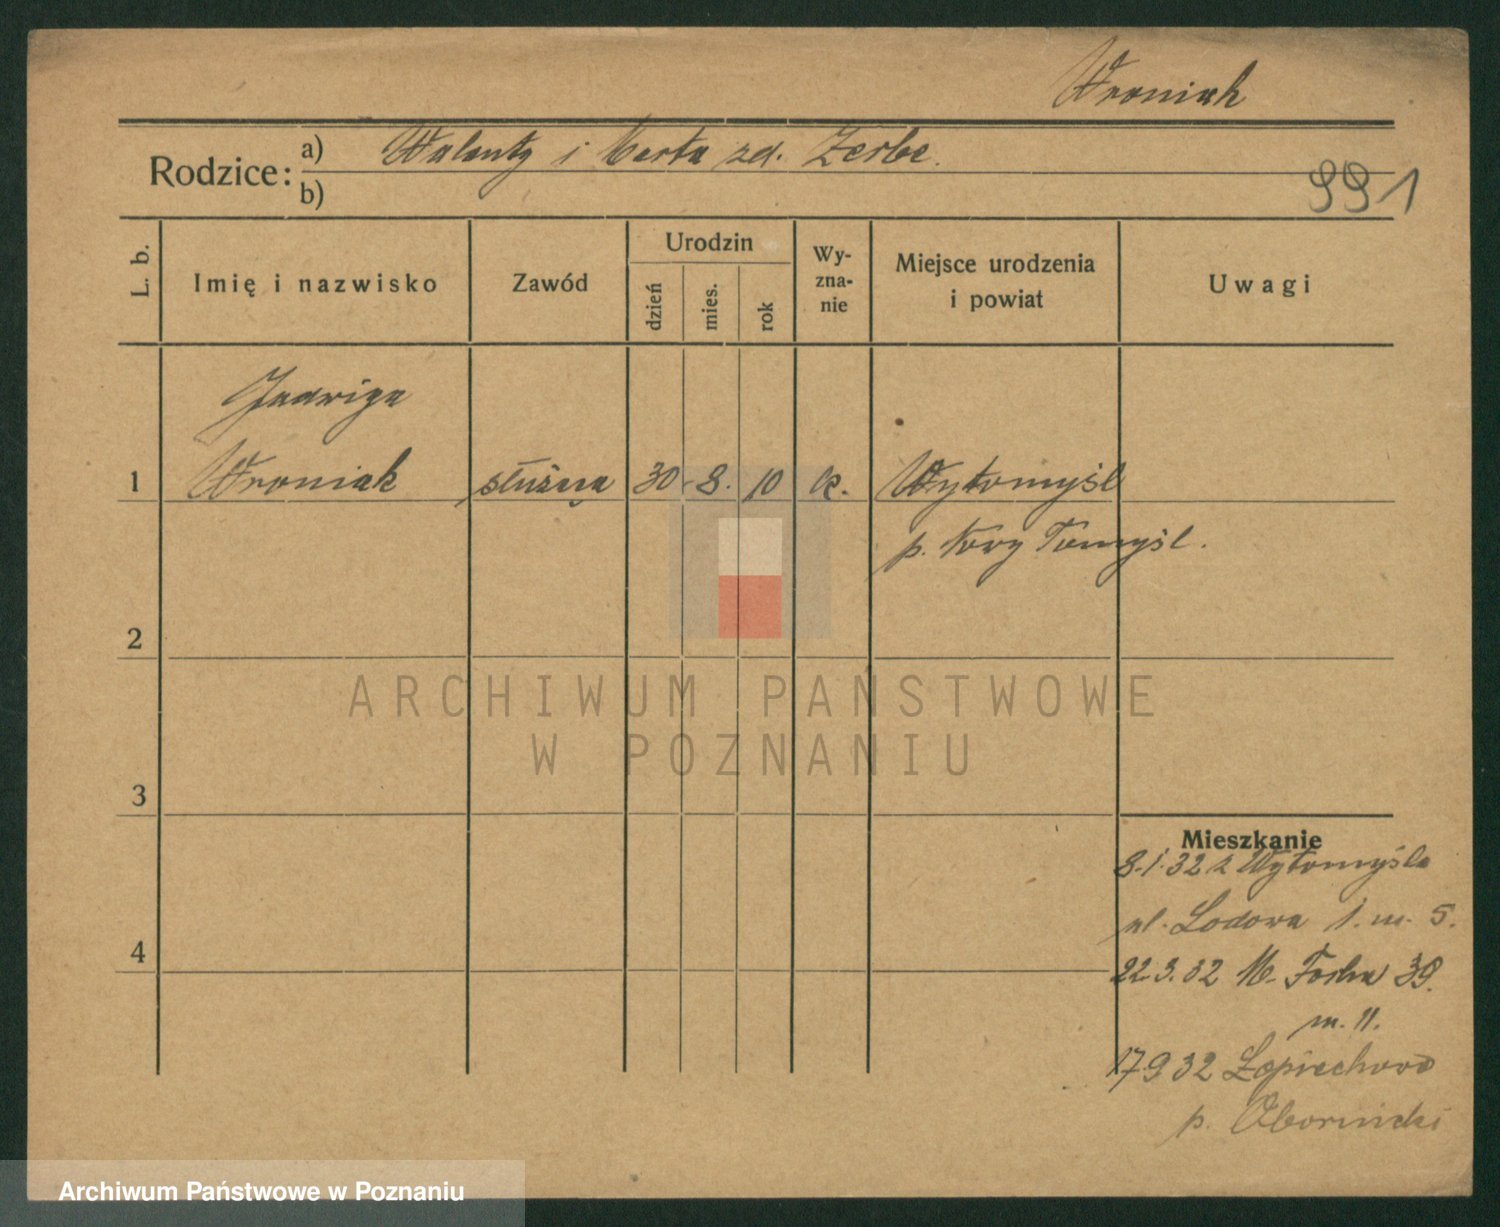 Wroniak
Rodzice: a) Walenty i Marta zd. Zerbe.
b)
991
L. b.
Imię i nazwisko
Zawód
Urodzin
dzień
mies.
rok
Wy-
zna-
nie
Miejsce urodzenia
i powiat
Uwagi
Jadwiga
1 Wroniak służąca 30. 8. 10 k. Wytomyśl
p. Nowy Tomyśl.
2
3
4
Mieszkanie
8.1.32 z Wytomyśla
ul. Lodowa 1. m. 5.
22.3.32 M. Focha 39.
m. 11.
17 9 32
p. Obornicki
ARCHIWUM PAŃSTWOWE
W POZNANIU
Archiwum Państwowe w Poznaniu